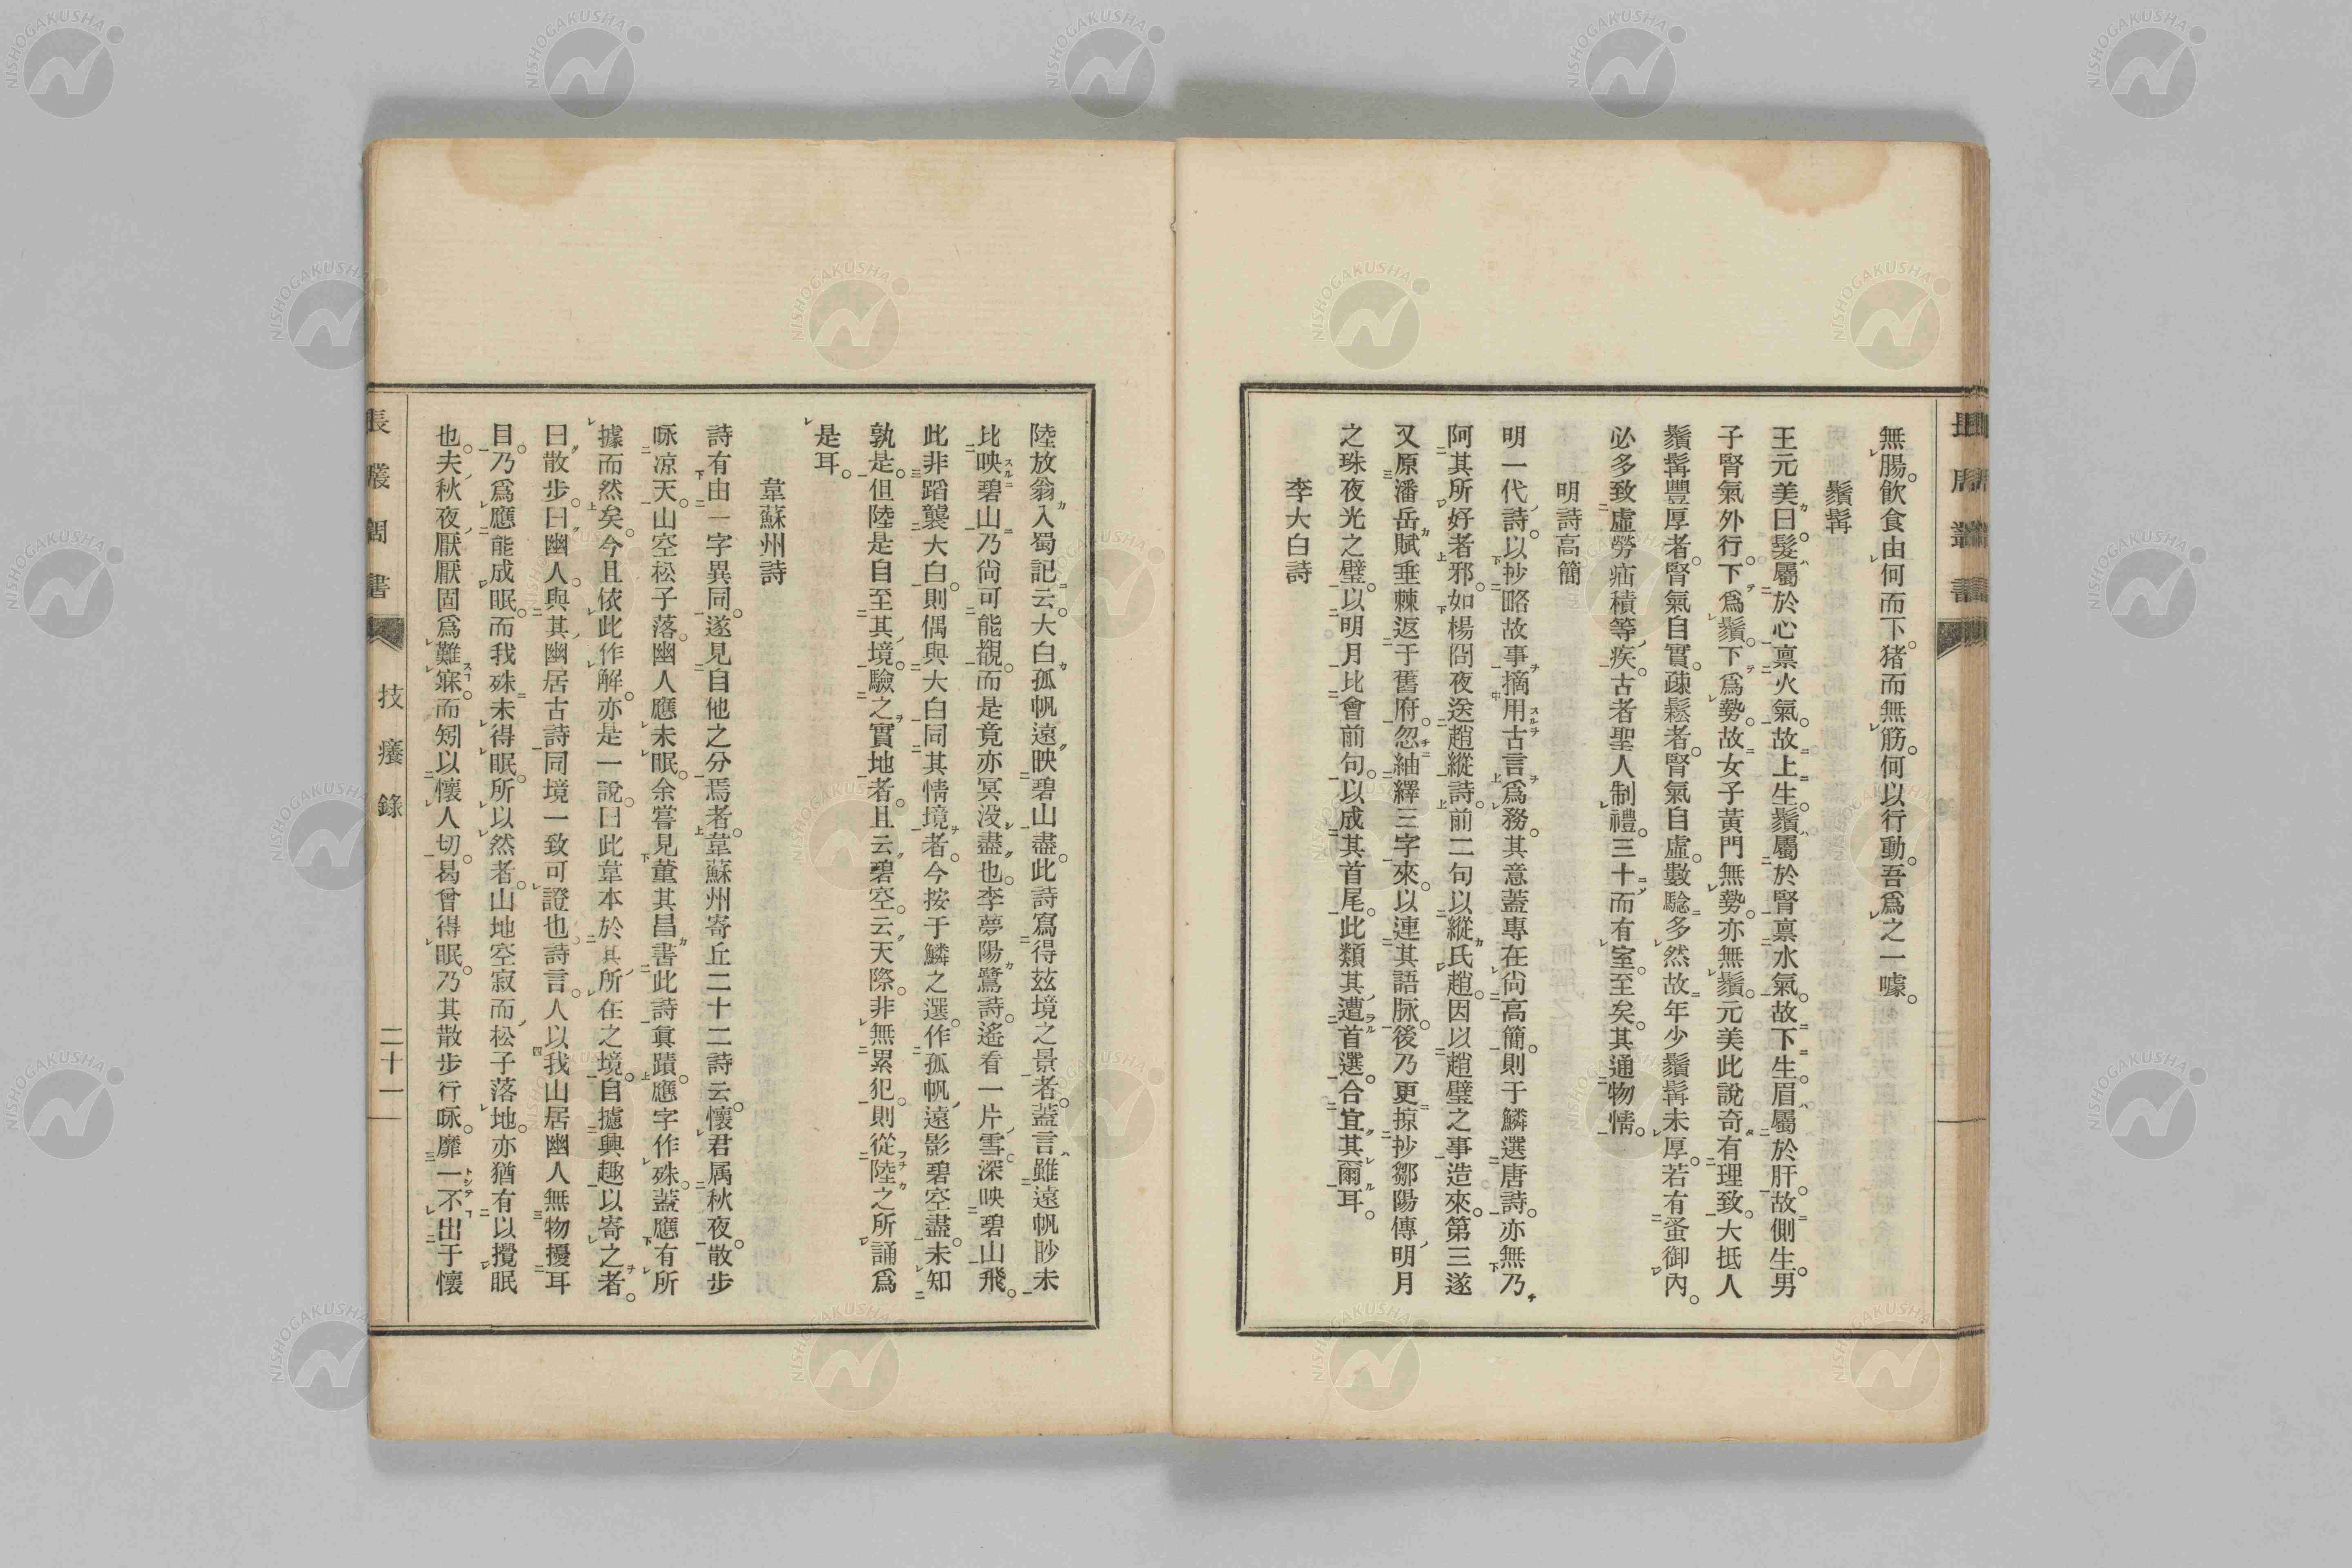 無腸。飲食由何而下。猪而無筋。何以行動。吾爲之一噱。
鬚髯
王元美曰。髮屬於心禀火氣。故上生。鬚屬於腎禀水氣。故下生。眉屬於肝。故側生。男
子腎氣外行。下爲鬚。下爲勢。故女子黃門無勢。亦無鬚。元美此說奇有理致。大抵人
鬚髯豐厚者。腎氣自實。疎鬆者。腎氣自虛。數驗多然。故年少鬚髯未厚。若有蚤御內。
必多致虛勞疝積等疾。古者聖人制禮。三十而有室。至矣。其通物情。
明詩高簡
明一代詩。以抄略故事摘用古言爲務。其意蓋專在尙高簡。則于鱗選唐詩。亦無乃
阿其所好者邪。如楊冏夜送趙縱詩。前二句以縱氏趙。因以趙璧之事造來。第三遂
又原潘岳賦垂棘返于舊府。忽紬繹三字來。以連其語脉。後乃更掠抄鄒陽傳明月
之珠夜光之璧。以明月比會前句。以成其首尾。此類其遭首選。合宜其爾耳。
李大白詩
陸放翁入蜀記云。大白孤帆遠映碧山盡。此詩寫得玆境之景者。蓋言雖遠帆眇未
比映碧山乃尙可能覩。而是竟亦冥没盡也。李夢陽鷺詩。遙看一片雪。深映碧山飛。
此非蹈襲大白。則偶與大白同其情境者。今按于鱗之選。作孤帆遠影碧空盡。未知
孰是。但陸是自至其境。驗之實地者。且云碧空。云天際。非無累犯。則從陸之所誦爲
是耳。
韋蘇州詩
詩有由一字異同。遂見自他之分焉者。韋蘇州寄丘二十二詩云。懷君属秋夜。散步
咏凉天。山空松子落。幽人應未眠。余嘗見董其昌書此詩眞蹟。應字作殊。蓋應有所
據而然矣。今且依此作解。亦是一說。曰此韋本於其所在之境。自攄興趣以寄之者。
曰散步。曰幽人。與其幽居古詩同境一致可證也。詩言。人以我山居幽人無物擾耳
目。乃爲應能成眠。而我殊未得眠。所以然者。山地空寂而松子落地。亦猶有以攪眠
也。夫秋夜厭厭固爲難寐。而矧以懷人切。曷曾得眠。乃其散步行咏。靡一不出于懷
長觽閒書
技癢錄
二十一